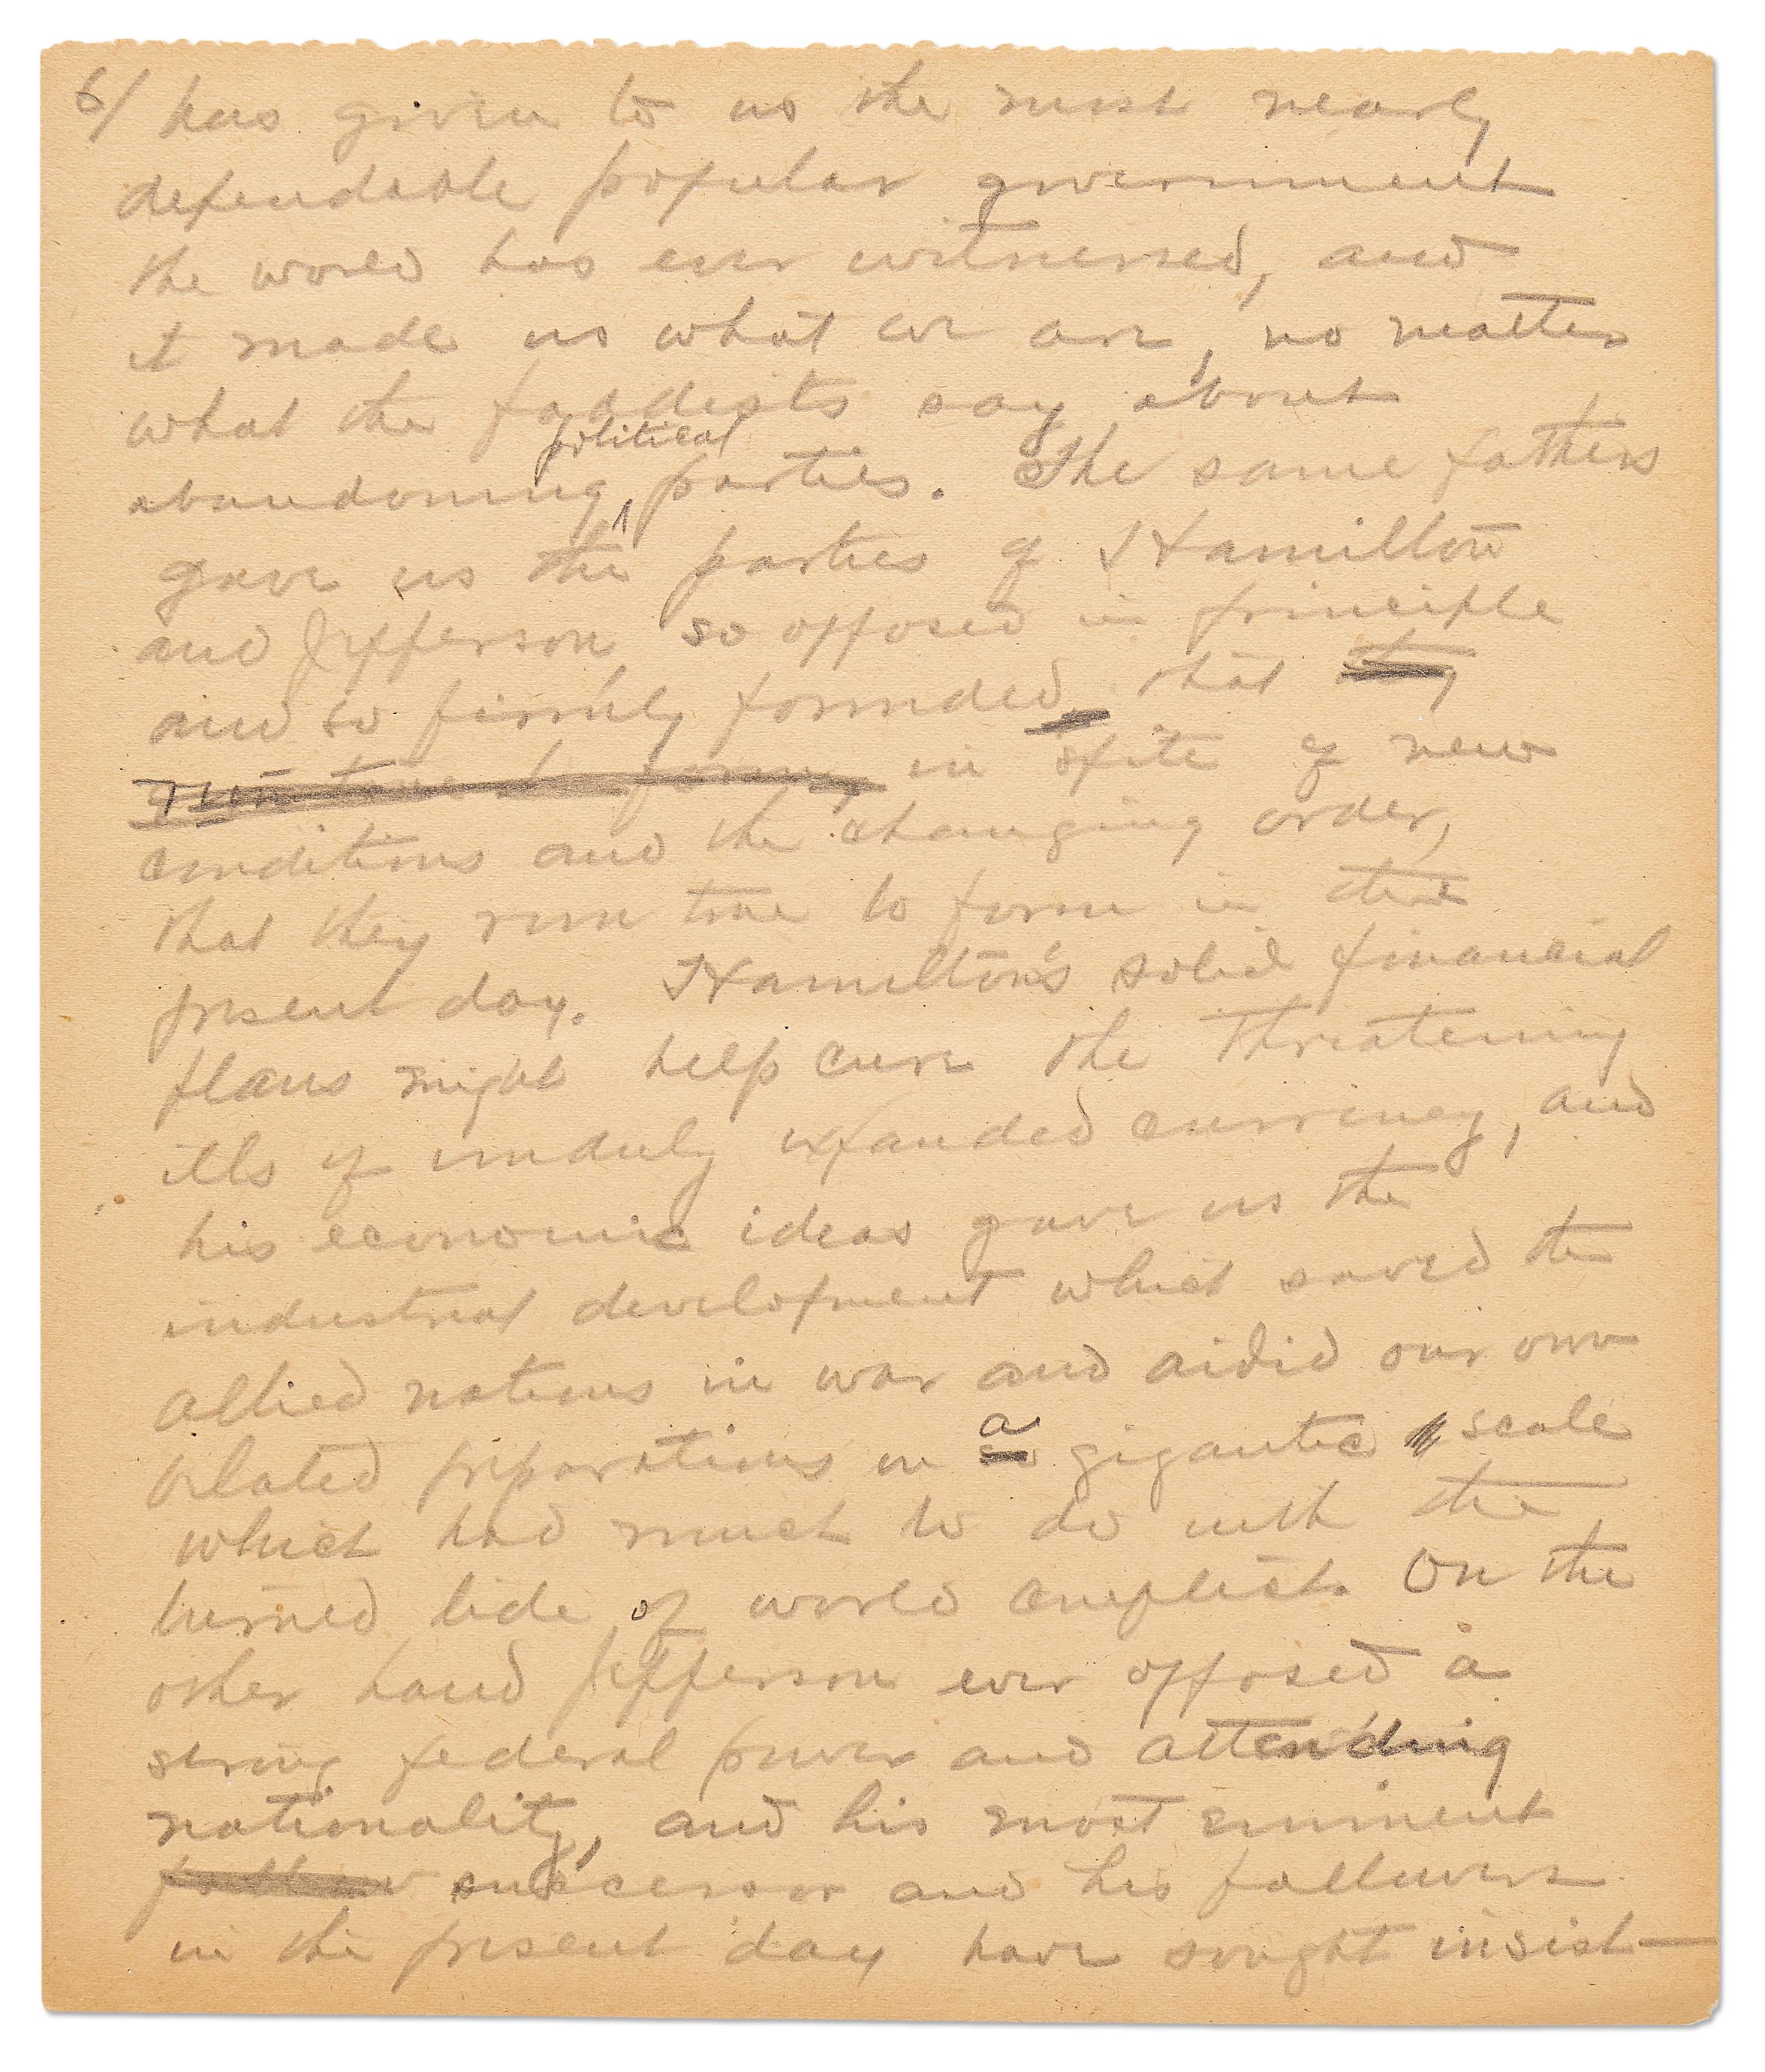 6/ has given to us the most nearly
dependable popular government
the world has ever witnessed, and
it made us what we are, no matter
what the faddists say about
political
abandoning parties. The same fathers
gave us the parties of Hamilton
and Jefferson so opposed in principle
and so firmly founded that they
run true to form, in spite of new
conditions and the changing order,
that they run true to form in the
present day. Hamilton's solid financial
plans might help cure the threatening
ills of unduly expanded currency, and
his economic ideas gave us the
industrial development which saved the
allied nations in war and aided our own
belated preparations on a gigantic scale
which had much to do with the
turned tide of world conflict. On the
other hand Jefferson ever opposed a
strong federal power and attending
nationality, and his most eminent
follower successor and his followers
in the present day have sought insist—